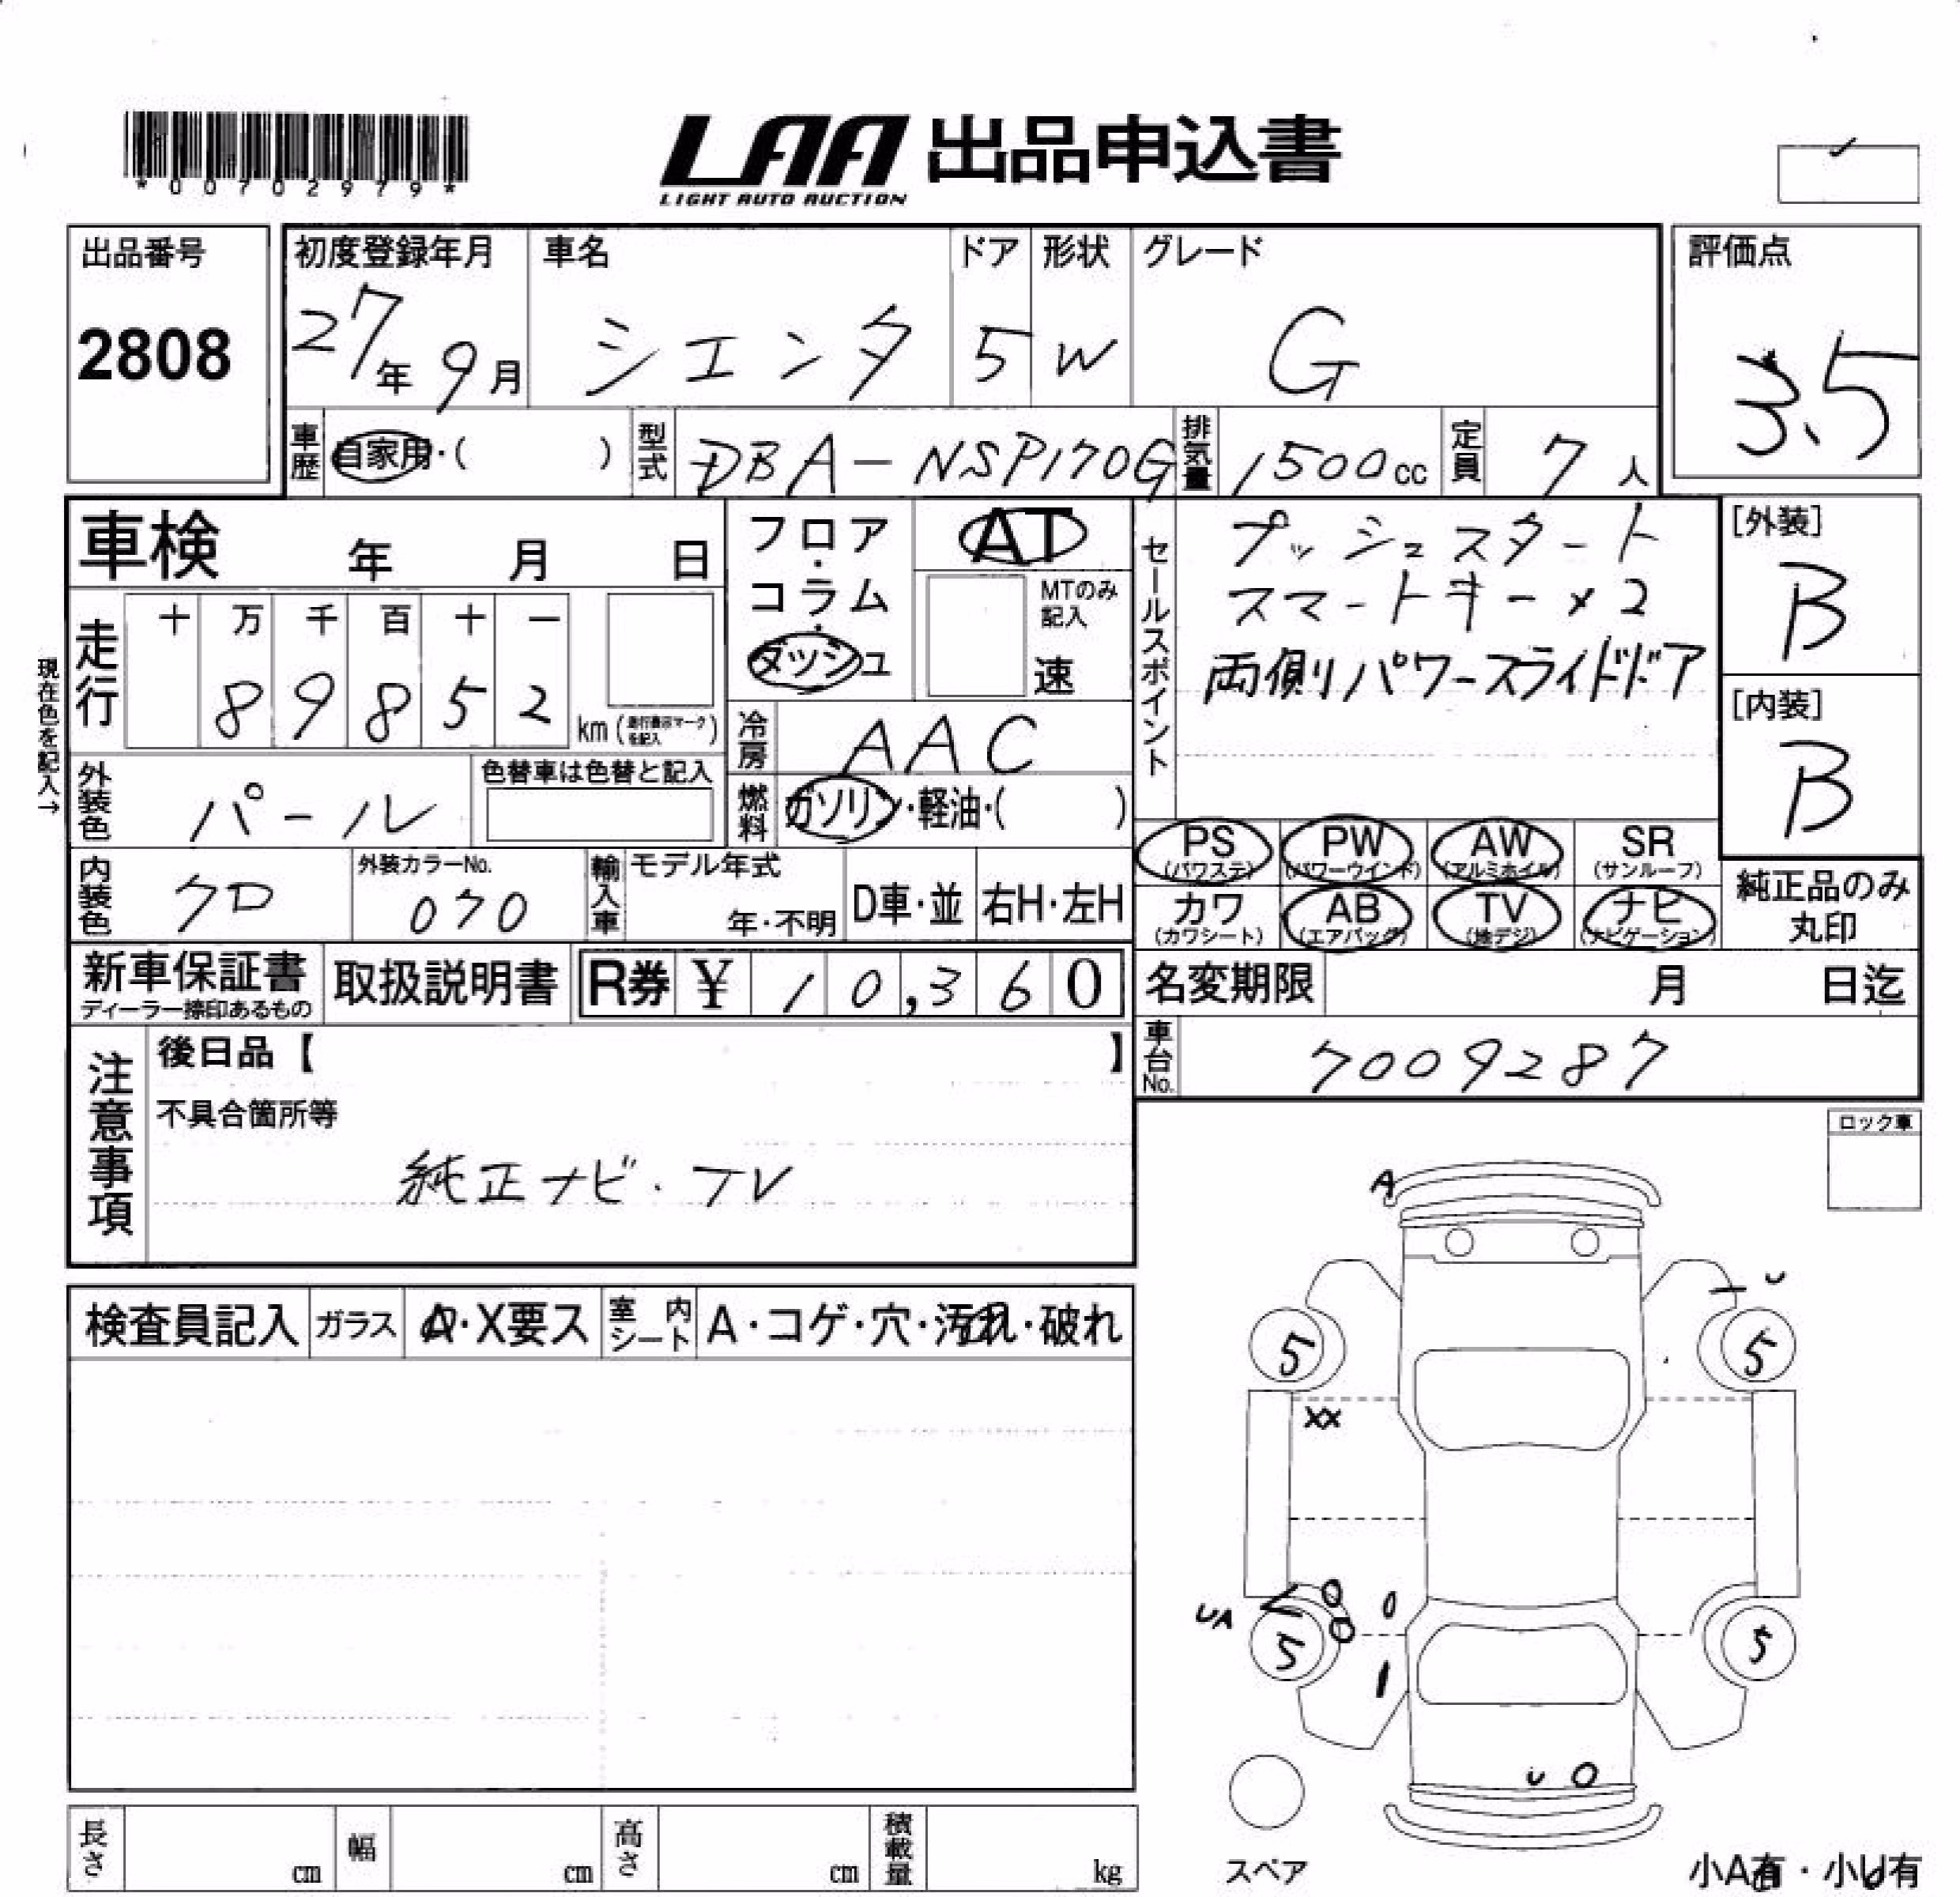 *00702979*
LAA 出品申込書
LIGHT AUTO AUCTION
出品番号
2808
初度登録年月
27年 9月
車名
シエンタ
ドア
5
形状
W
グレード
G
評価点
3.5
車歴
自家用・( )
型式
DBA-NSP170G
排気量
1500cc
定員
7人
車検 年 月 日
フロア・コラム・ダッシュ
AT
MTのみ記入
速
セールスポイント
プッシュスタート
スマートキー×2
両側パワースライドドア
[外装]
B
[内装]
B
現在色を記入→
走行
十 万 千 百 十 一
8 9 8 5 2
km(走行表示マークを記入)
冷房
AAC
外装色
パール
色替車は色替と記入
燃料
ガソリン・軽油・( )
PS
(パワステ)
PW
(パワーウインド)
AW
(アルミホイル)
SR
(サンルーフ)
カワ
(カワシート)
AB
(エアバッグ)
TV
(地デジ)
ナビ
(ナビゲーション)
純正品のみ
丸印
内装色
クロ
外装カラーNo.
070
輸入車
モデル年式
年・不明
D車・並
右H・左H
新車保証書
ディーラー捺印あるもの
取扱説明書
R券 ¥ 10,360
名変期限 月 日迄
車台No.
7009287
注意事項
後日品【 】
不具合箇所等
純正ナビ・TV
ロック車
検査員記入
ガラス
A・X要ス
室内シート
A・コゲ・穴・汚れ・破れ
A
5
5
XX
UA
5
5
U
スペア
小A有・小U有
長さ cm
幅 cm
高さ cm
積載量 kg